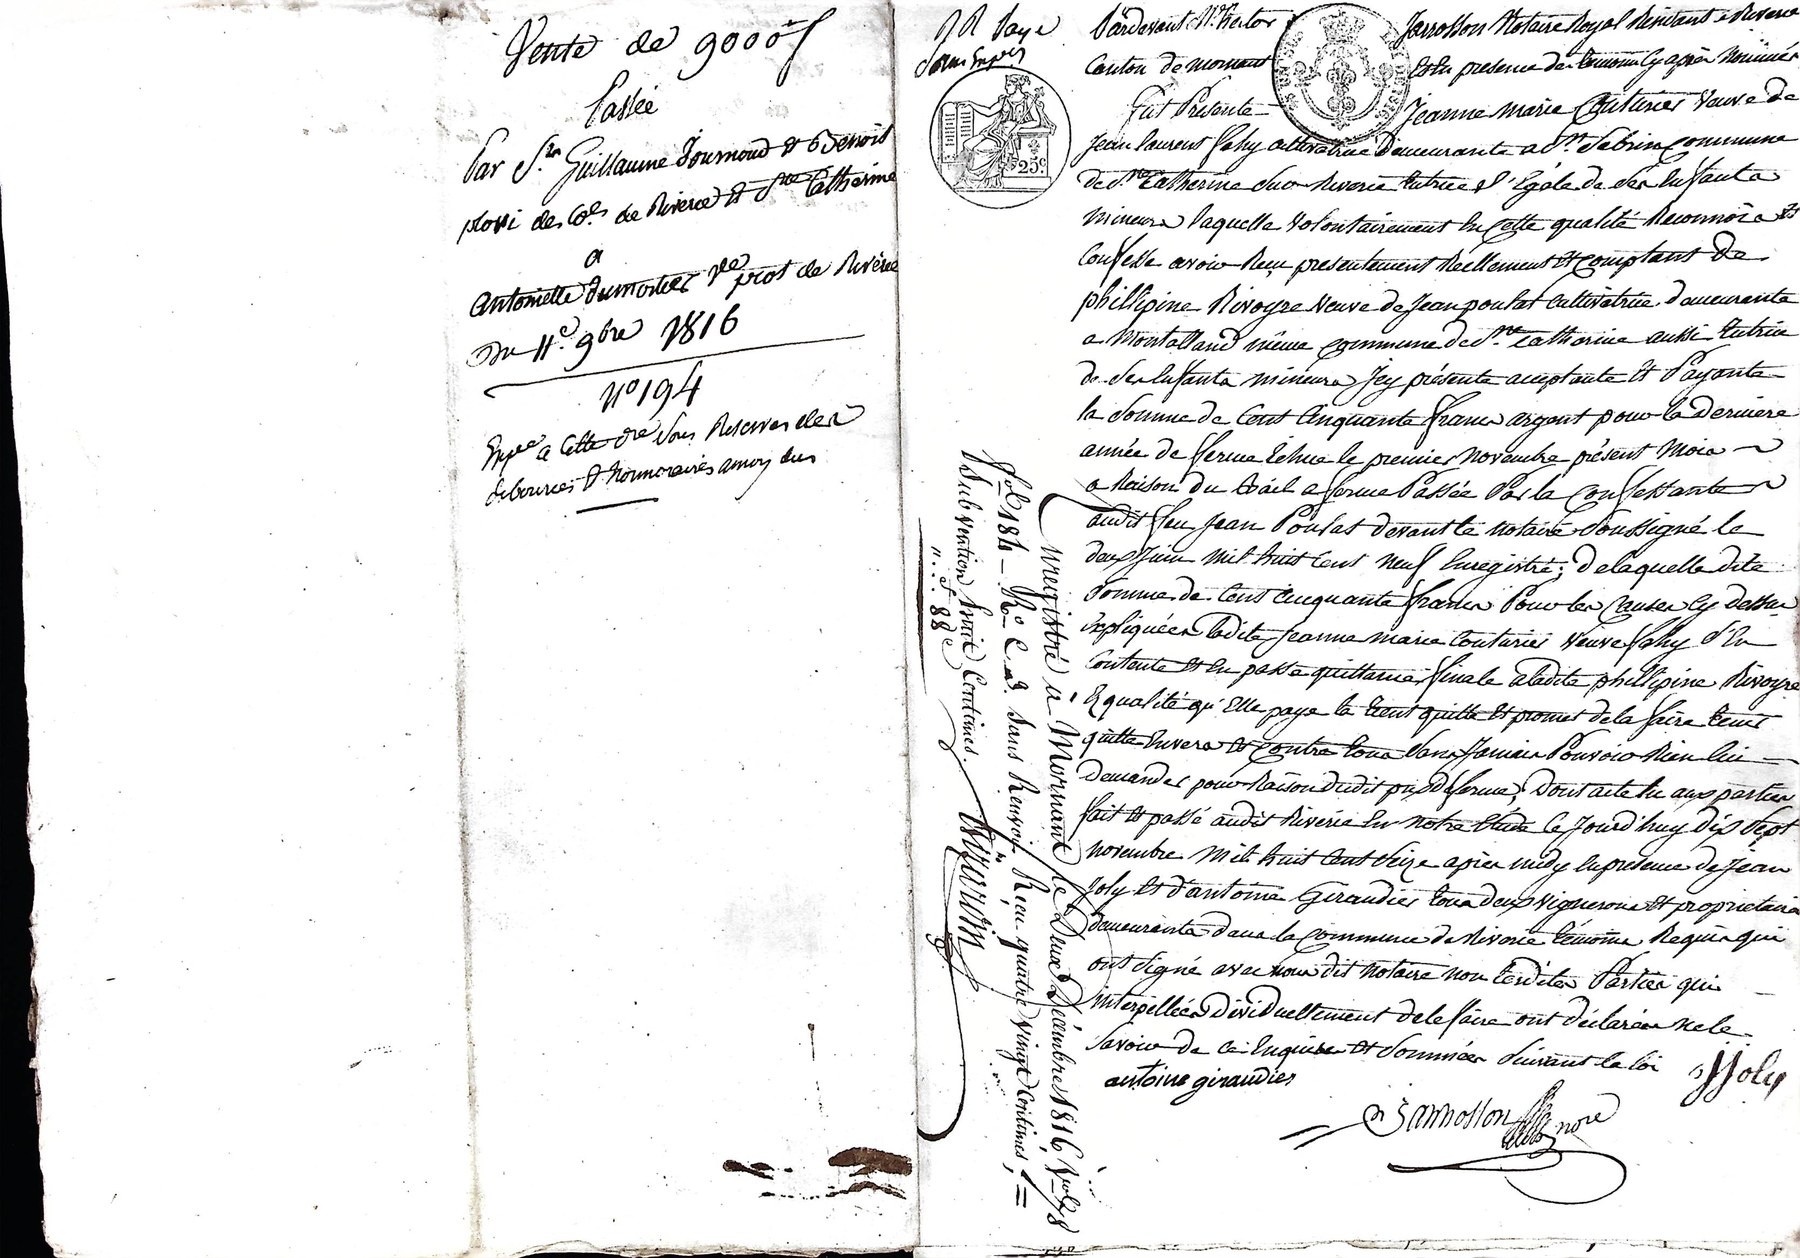 Vente de 9000 f
Passée
Par Sr. Guillaume Tournoud et Benoit
plovi des Cnes de Riverie et Ste Catherine
a
antoinette Dumortier Ve piot de Riverie
Du 11e. 9bre 1816
N° 194
a Cette dre Sous Reserves des
debources et honnoraires amoy dus
Pardevant Me. hector Jarrosson Notaire Royal Residant a Riverie
Canton de mornant Et En presence des temoins Cy apres Nommés
Fut Présente Jeanne marie Couturier Veuve de
Jean Laurent fahy cultivatrice Demeurante a St. Sabin Commune
de Ste Catherine Sur Riverie tutrice Légale de Ses Enfants
mineurs laquelle volontairement En Cette qualité Reconnois et
Confesse avoir Reçu presentement Réellement et comptant de
phillipine Rivoyre veuve de Jean poulat Cultivatrice demeurante
a Montalland même Commune de Ste Catherine aussi tutrice
de Ses Enfants mineurs Jcy présente acceptante et Payante
la Somme de Cent Cinquante francs argent pour la Derniere
année de ferme Echue le premier Novembre présent Mois
a Raison du Bail a ferme Passée Par la Confessante
audit feu Jean Poulat devant le notaire Soussigné le
deux Juin Mil huit Cent neuf Enregistré; de laquelle dite
Somme de Cent Cinquante francs Pour les Causes Cy dessus
Expliquées ladite Jeanne marie Couturier Veuve fahy S'En
Contente et En passe quittance finale a ladite phillipine Rivoyre
Ez qualité qu'Elle paye la tient quitte et promet de la faire tenir
quitte Envers et Contre tous Sans Jamais Pouvoir Rien lui
demander pour Raison dudit prix de ferme; Dont acte lu aux parties
fait et passé audit Riverie En notre Etude Ce Jourd'huy Dix Sept
novembre Mil huit Cent Seize après midy En presence de Jean
Joly et d'antoine Giraudier tous deux vignerons et proprietaires
demeurants dans la Commune de Riverie témoins Requis qui
ont Signé avec nous dit Notaire non Lesdites Parties qui
interpellées Dividuellement de le faire ont déclarées ne le
Savoir de ce Enquises et Sommées Suivant la loi
antoine giraudier
J Joly
Jarrosson nore
25c.
Enregistré à Mornant le Deux Décembre 1816 Vol. 78
fol. 184 Rº C. 2d. Sans Renvoi, Reçu quatre vingt Centimes,
Subvention huit Centimes.
" f 88 c